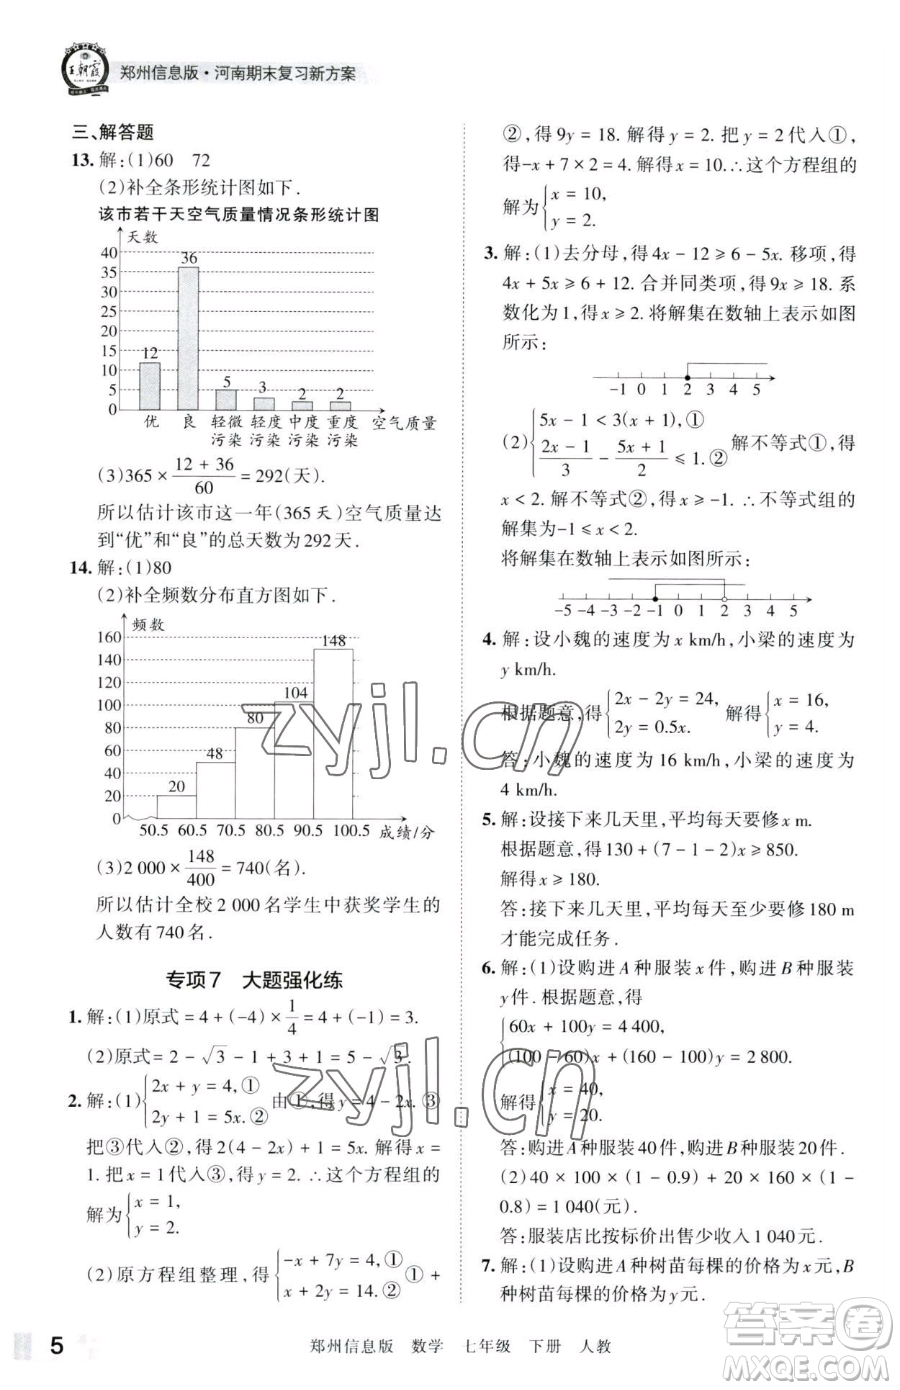 王朝霞
郑州信息版·河南期末复习新方案
三、解答题
13.解:(1)60 72
(2)补全条形统计图如下.
该市若干天空气质量情况条形统计图
天数
40
35
30
25
20
15
10
5
0
12
36
5
3
2
2
优 良 轻微 轻度 中度 重度 空气质量
污染 污染 污染 污染
(3)365×(12+36)/60=292(天).
所以估计该市这一年(365天)空气质量达
到“优”和“良”的总天数为292天.
14.解:(1)80
(2)补全频数分布直方图如下.
频数
160
140
120
100
80
60
40
20
0
20
48
80
104
148
50.5 60.5 70.5 80.5 90.5 100.5 成绩/分
(3)2 000×148/400=740(名).
所以估计全校2 000名学生中获奖学生的
人数有740名.
专项7 大题强化练
1.解:(1)原式=4+(-4)×1/4=4+(-1)=3.
(2)原式=2-√3-1+3+1=5-√3.
2.解:(1){2x+y=4,① 2y+1=5x.② 由①,得y=4-2x.③
把③代入②,得2(4-2x)+1=5x.解得x=
1.把x=1代入③,得y=2.∴这个方程组的
解为{x=1, y=2.
(2)原方程组整理,得{-x+7y=4,① x+2y=14.② ①+
②,得9y=18.解得y=2.把y=2代入①,
得-x+7×2=4.解得x=10.∴这个方程组的
解为{x=10, y=2.
3.解:(1)去分母,得4x-12≥6-5x.移项,得
4x+5x≥6+12.合并同类项,得9x≥18.系
数化为1,得x≥2.将解集在数轴上表示如图
所示:
-1 0 1 2 3 4 5
(2){5x-1<3(x+1),① (2x-1)/3-(5x+1)/2≤1.② 解不等式①,得
x<2.解不等式②,得x≥-1.∴不等式组的
解集为-1≤x<2.
将解集在数轴上表示如图所示:
-5 -4 -3 -2 -1 0 1 2 3 4 5
4.解:设小魏的速度为x km/h,小梁的速度为
y km/h.
根据题意,得{2x-2y=24, 2y=0.5x. 解得{x=16, y=4.
答:小魏的速度为16 km/h,小梁的速度为
4 km/h.
5.解:设接下来几天里,平均每天要修x m.
根据题意,得130+(7-1-2)x≥850.
解得x≥180.
答:接下来几天里,平均每天至少要修180 m
才能完成任务.
6.解:(1)设购进A种服装x件,购进B种服装
y件.根据题意,得
{60x+100y=4 400, (100-60)x+(160-100)y=2 800.
解得{x=40, y=20.
答:购进A种服装40件,购进B种服装20件.
(2)40×100×(1-0.9)+20×160×(1-
0.8)=1 040(元).
答:服装店比按标价出售少收入1 040元.
7.解:(1)设购进A种树苗每棵的价格为x元,B
种树苗每棵的价格为y元.
zyjl.cn
zyjl.cn
作业精灵
MXQE.COM
5
郑州信息版 数学 七年级 下册 人教